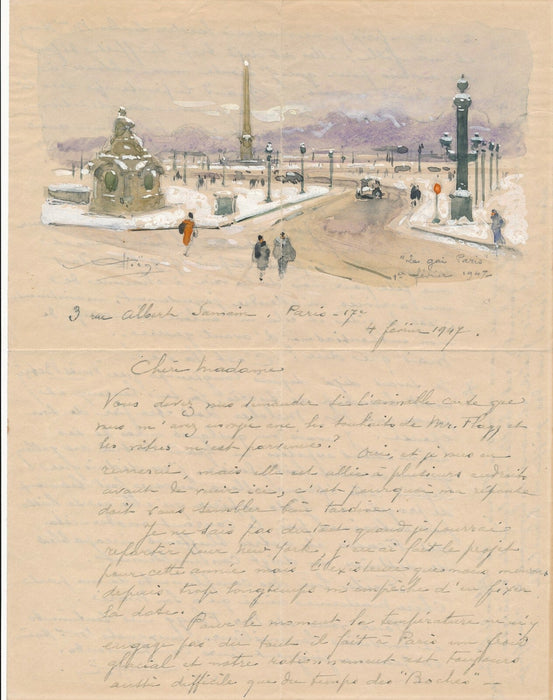 "Le gai Paris"
1er février 1947
3 rue Albert Samain. Paris - 17e
4 février 1947.
Chère Madame
Vous devez vous demander si l'aimable carte que
vous m'avez envoyé avec les souhaits de Mr. Flagg et
les vôtres m'est parvenue? Oui, et je vous en
remercie, mais elle est allée à plusieurs endroits
avant de venir ici, c'est pourquoi ma réponse
doit vous sembler bien tardive.
Je ne sais pas du tout quand je pourrai
repartir pour New York, j'avais fait le projet
pour cette année mais l'existence que nous menons
depuis trop longtemps m'empêche d'en fixer
la date.
Pour le moment la température ne m'y
engage pas du tout il fait à Paris un froid
glacial et notre rationnement est toujours
aussi difficile que du temps des "Boches" -